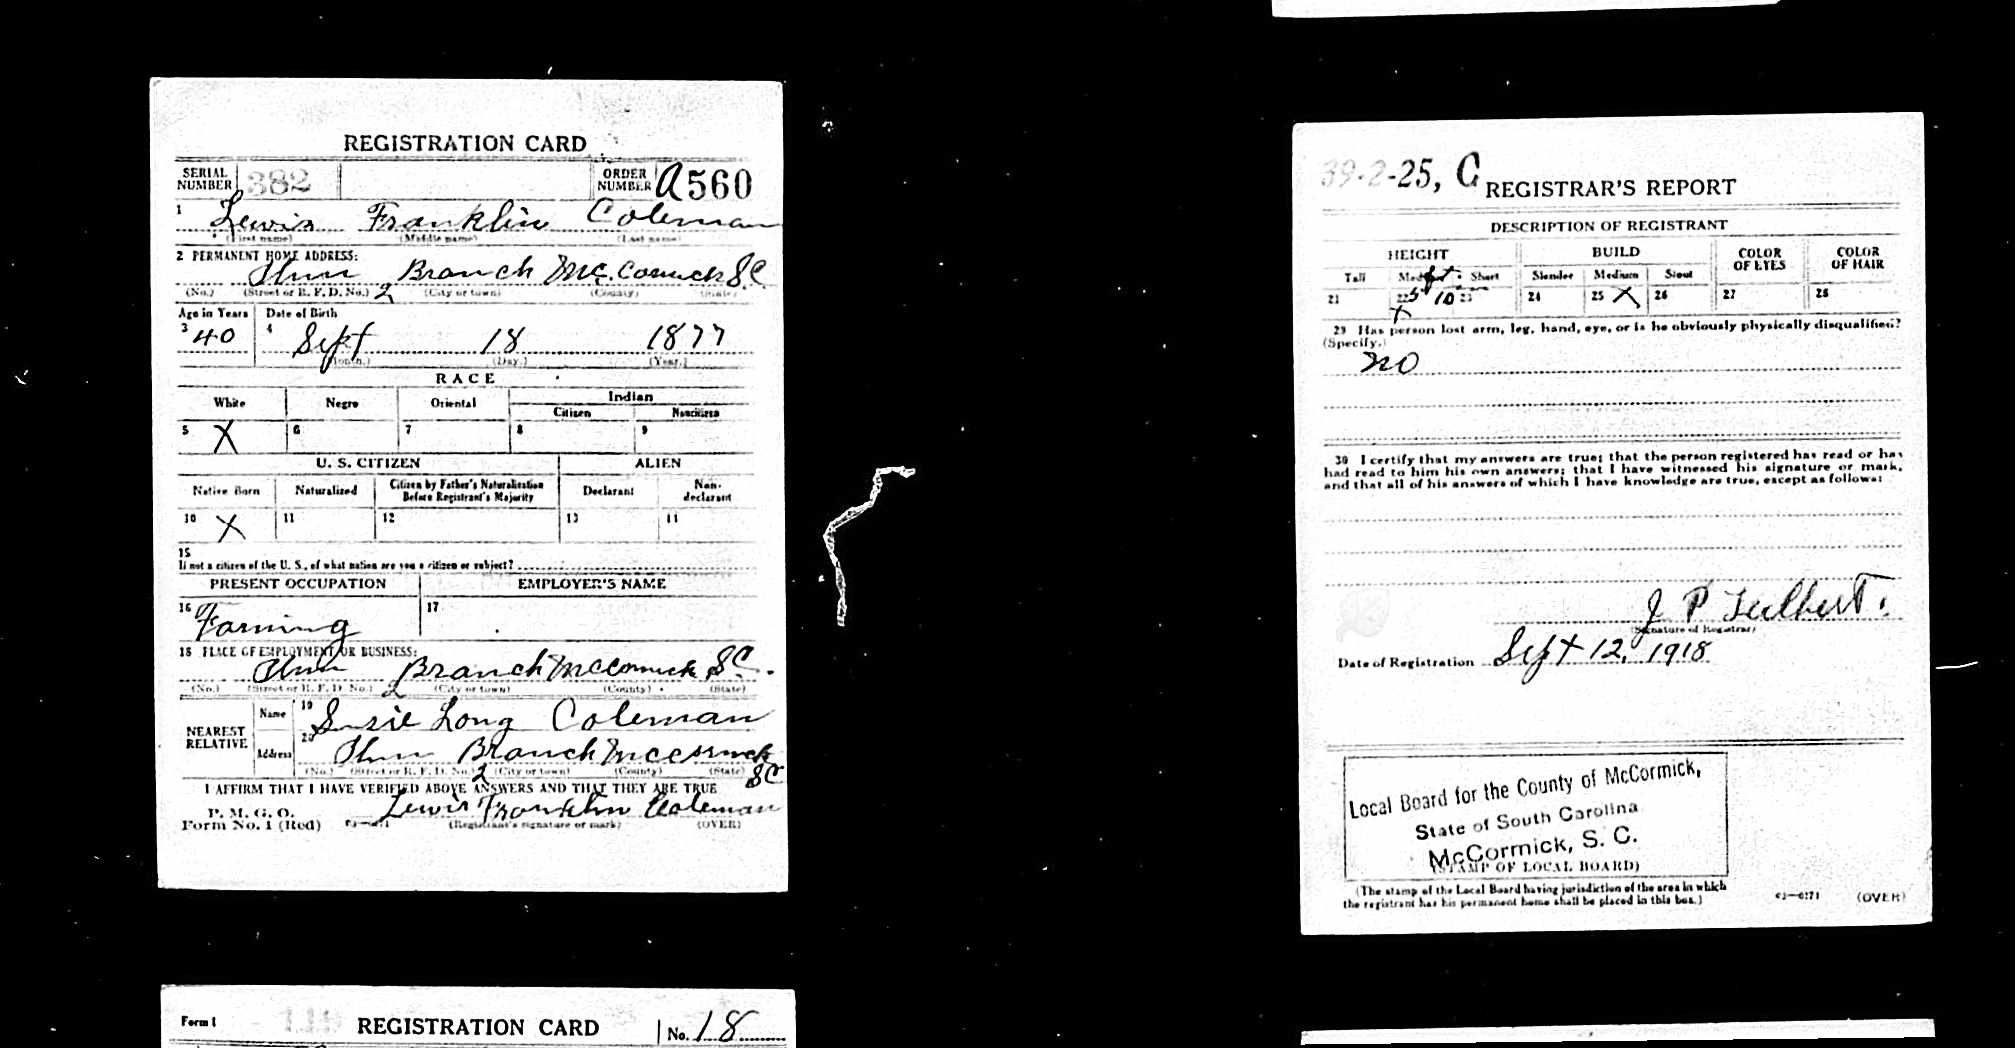 REGISTRATION CARD
SERIAL NUMBER 382 ORDER NUMBER A560
1 Lewis Franklin Coleman
(First name) (Middle name) (Last name)
2 PERMANENT HOME ADDRESS:
Branch McCormick S.C.
(No.) (Street or R. F. D. No.) 2 (City or town) (County) (State)
Age in Years Date of Birth
3 40 4 Sept 18 1877
(Month.) (Day.) (Year.)
RACE
White Negro Oriental Indian
Citizen Noncitizen
5 X 6 7 8 9
U. S. CITIZEN ALIEN
Native Born Naturalized Citizen by Father's Naturalization Before Registrant's Majority Declarant Non-declarant
10 X 11 12 13 14
15
If not a citizen of the U. S., of what nation are you a citizen or subject?
PRESENT OCCUPATION EMPLOYER'S NAME
16 Farming 17
18 PLACE OF EMPLOYMENT OR BUSINESS:
Branch McCormick S.C.
(No.) (Street or R. F. D. No.) 2 (City or town) (County) (State)
NEAREST RELATIVE
Name 19 Susie Long Coleman
Address 20 Branch McCormick
(No.) (Street or R. F. D. No.) 2 (City or town) (County) (State) SC
I AFFIRM THAT I HAVE VERIFIED ABOVE ANSWERS AND THAT THEY ARE TRUE
P. M. G. O.
Form No. 1 (Red) Lewis Franklin Coleman
(Registrant's signature or mark) (OVER)
Form 1 REGISTRATION CARD No. 18
39-2-25, C
REGISTRAR'S REPORT
DESCRIPTION OF REGISTRANT
HEIGHT BUILD COLOR OF EYES COLOR OF HAIR
Tall Medium Short Slender Medium Stout
21 22 5 ft 10 X 23 24 25 X 26 27 28
29 Has person lost arm, leg, hand, eye, or is he obviously physically disqualified?
(Specify.)
no
30 I certify that my answers are true; that the person registered has read or has
had read to him his own answers; that I have witnessed his signature or mark,
and that all of his answers of which I have knowledge are true, except as follows:
J P
(Signature of Registrar)
Date of Registration Sept 12, 1918
Local Board for the County of McCormick,
State of South Carolina
McCormick, S. C.
(STAMP OF LOCAL BOARD)
(The stamp of the Local Board having jurisdiction of the area in which
the registrant has his permanent home shall be placed in this box.)
(OVER)